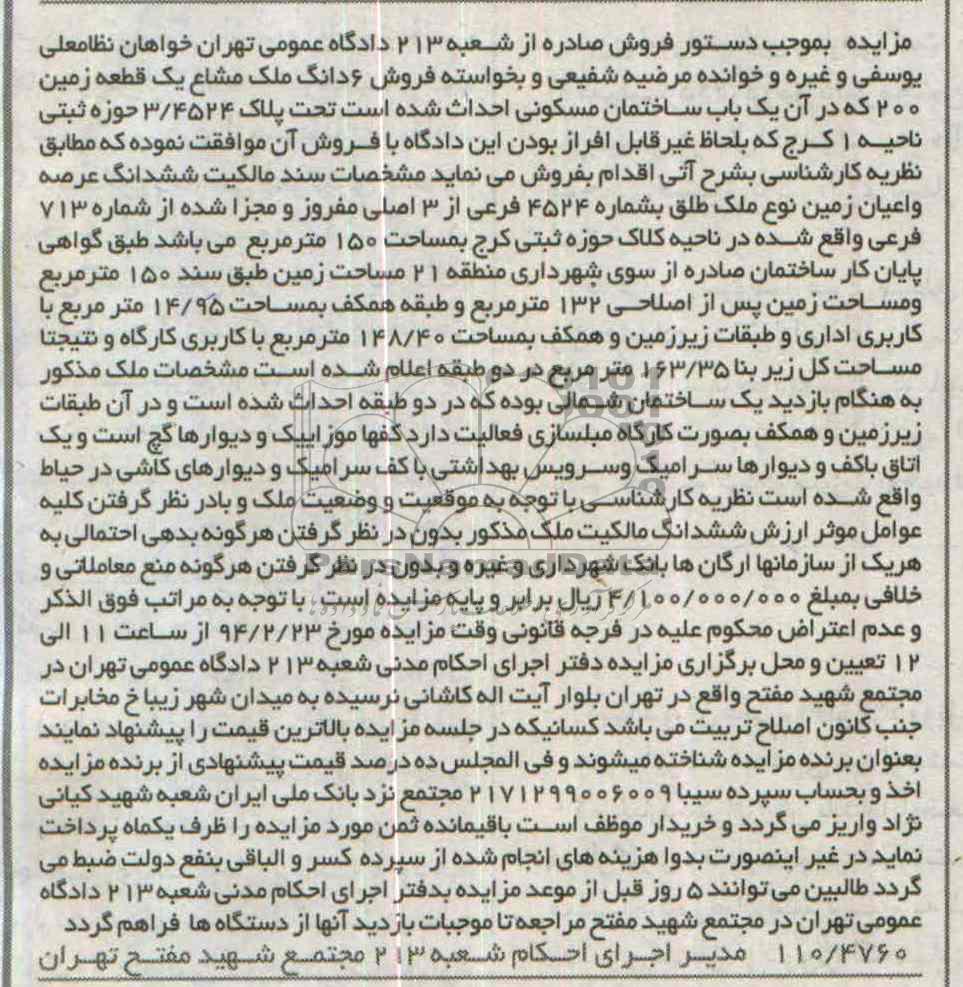 مزایده بموجب دستور فروش صادره از شعبه ۲۱۳ دادگاه عمومی تهران خواهان نظامعلی
یوسفی و غیره و خوانده مرضیه شفیعی و بخواسته فروش ۶دانگ ملک مشاع یک قطعه زمین
۲۰۰ که در آن یک باب ساختمان مسکونی احداث شده است تحت پلاک ۳/۴۵۲۴ حوزه ثبتی
ناحیه ۱ کرج که بلحاظ غیرقابل افراز بودن این دادگاه با فروش آن موافقت نموده که مطابق
نظریه کارشناسی بشرح آتی اقدام بفروش می نماید مشخصات سند مالکیت ششدانگ عرصه
واعیان زمین نوع ملک طلق بشماره ۴۵۲۴ فرعی از ۳ اصلی مفروز و مجزا شده از شماره ۷۱۳
فرعی واقع شده در ناحیه کلاک حوزه ثبتی کرج بمساحت ۱۵۰ مترمربع می باشد طبق گواهی
پایان کار ساختمان صادره از سوی شهرداری منطقه ۲۱ مساحت زمین طبق سند ۱۵۰ مترمربع
ومساحت زمین پس از اصلاحی ۱۳۲ مترمربع و طبقه همکف بمساحت ۱۴/۹۵ متر مربع با
کاربری اداری و طبقات زیرزمین و همکف بمساحت ۱۴۸/۴۰ مترمربع با کاربری کارگاه و نتیجتا
مساحت کل زیر بنا ۱۶۳/۳۵ متر مربع در دو طبقه اعلام شده است مشخصات ملک مذکور
به هنگام بازدید یک ساختمان شمالی بوده که در دو طبقه احداث شده است و در آن طبقات
زیرزمین و همکف بصورت کارگاه مبلسازی فعالیت دارد کفها موزاییک و دیوارها گچ است و یک
اتاق باکف و دیوارها سرامیک وسرویس بهداشتی با کف سرامیک و دیوارهای کاشی در حیاط
واقع شده است نظریه کارشناسی با توجه به موقعیت و وضعیت ملک و بادر نظر گرفتن کلیه
عوامل موثر ارزش ششدانگ مالکیت ملک مذکور بدون در نظر گرفتن هرگونه بدهی احتمالی به
هریک از سازمانها ارگان ها بانک شهرداری و غیره و بدون در نظر گرفتن هرگونه منع معاملاتی و
خلافی بمبلغ ۴/۱۰۰/۰۰۰/۰۰۰ ریال برابر و پایه مزایده است . با توجه به مراتب فوق الذکر
و عدم اعتراض محکوم علیه در فرجه قانونی وقت مزایده مورخ ۹۴/۲/۲۳ از ساعت ۱۱ الی
۱۲ تعیین و محل برگزاری مزایده دفتر اجرای احکام مدنی شعبه ۲۱۳ دادگاه عمومی تهران در
مجتمع شهید مفتح واقع در تهران بلوار آیت اله کاشانی نرسیده به میدان شهر زیبا خ مخابرات
جنب کانون اصلاح تربیت می باشد کسانیکه در جلسه مزایده بالاترین قیمت را پیشنهاد نمایند
بعنوان برنده مزایده شناخته میشوند و فی المجلس ده درصد قیمت پیشنهادی از برنده مزایده
اخذ و بحساب سپرده سیبا ۲۱۷۱۲۹۹۰۰۶۰۰۹ مجتمع نزد بانک ملی ایران شعبه شهید کیانی
نژاد واریز می گردد و خریدار موظف است باقیمانده ثمن مورد مزایده را ظرف یکماه پرداخت
نماید در غیر اینصورت بدوا هزینه های انجام شده از سپرده کسر و الباقی بنفع دولت ضبط می
گردد طالبین می توانند ۵ روز قبل از موعد مزایده بدفتر اجرای احکام مدنی شعبه ۲۱۳ دادگاه
عمومی تهران در مجتمع شهید مفتح مراجعه تا موجبات بازدید آنها از دستگاه ها فراهم گردد
۱۱۰/۴۷۶۰ مدیر اجرای احکام شعبه ۲۱۳ مجتمع شهید مفتح تهران
ParsNamadData